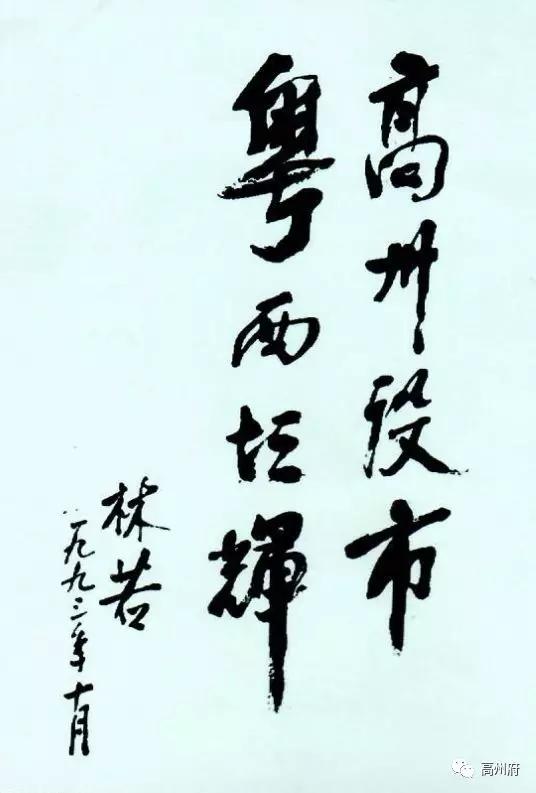 高州设市
粤西增輝
林若
一九九三年十月
高州府